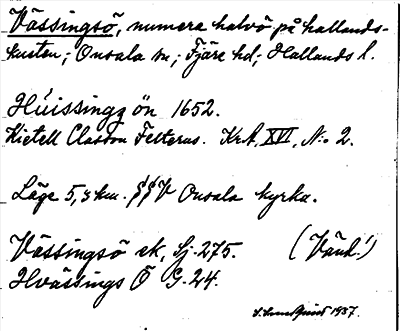 Vässingsö, numera halvö på hallands-
kusten; Onsala sn; Fjäre hd; Hallands l.
Huissingz ön 1652.
Kietell Classon Felterus. KrA, XVI, N:o 2.
Läge 5,3 km. SSV Onsala kyrka.
Vässingsö ek, Sj. 275. (Vänd!)
Hvässings Ö G. 24.
1937.